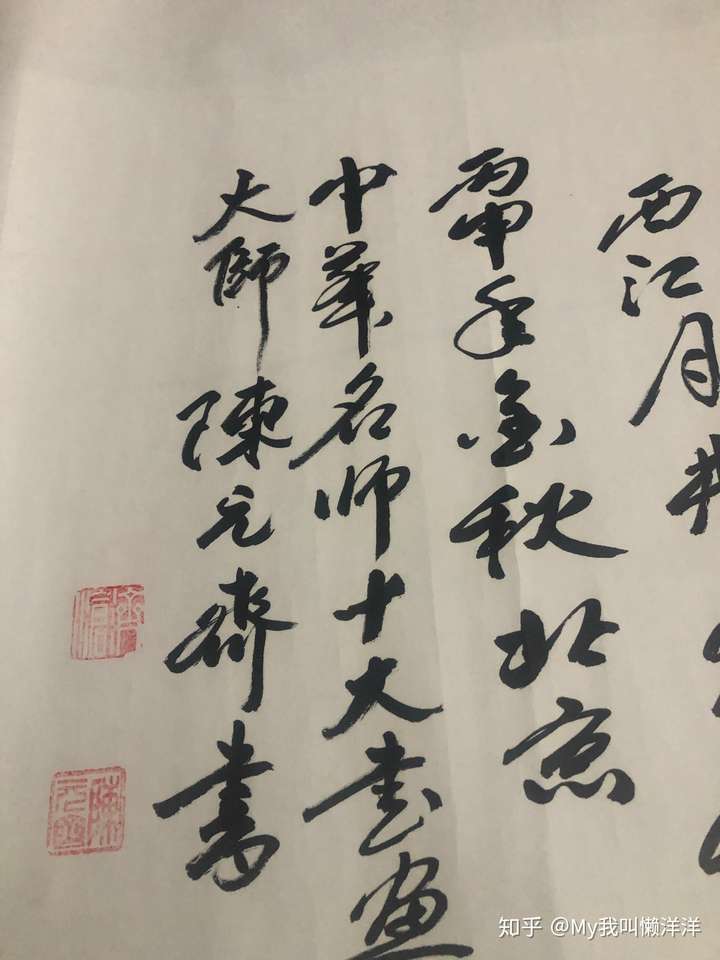 西江月井
丙申年金秋北京
中華名师十大书画
大師陳元齋書
知乎 @My我叫懒洋洋